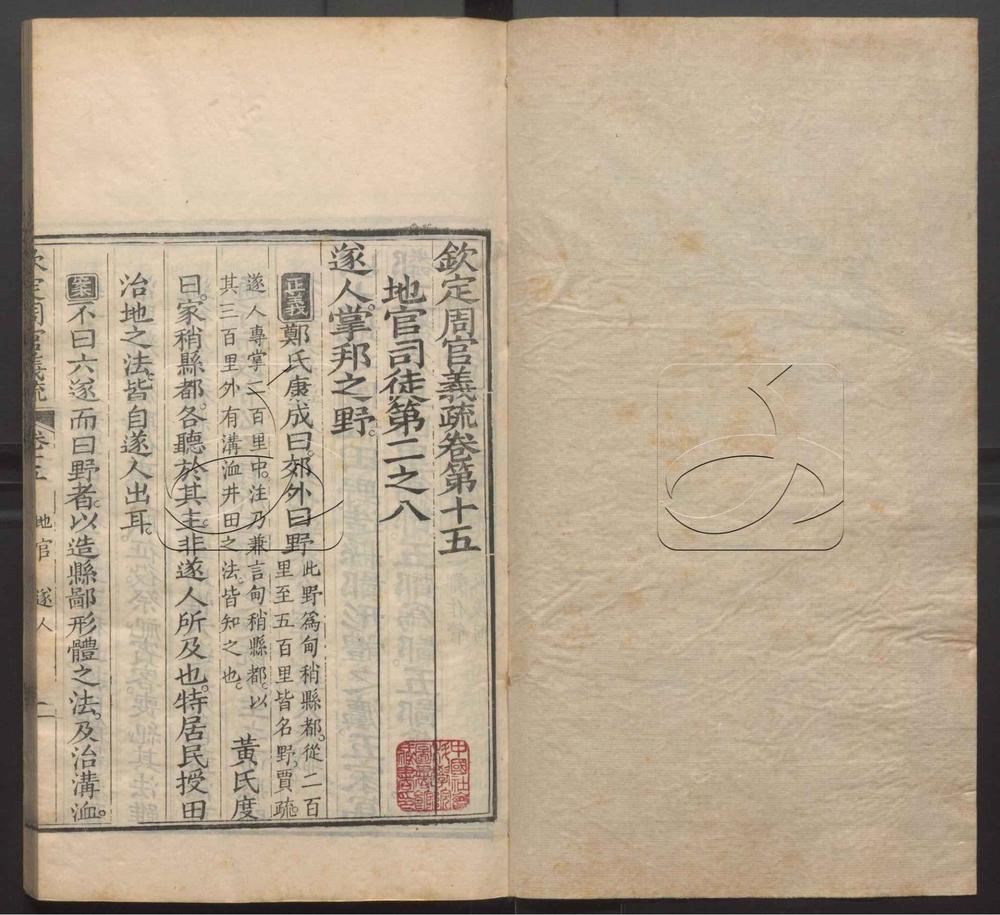 欽定周官義疏卷第十五
地官司徒第二之八
遂人掌邦之野。
正義鄭氏康成曰。郊外曰野此野爲甸稍縣都。從二百
里至五百里皆名野。賈疏
遂人專掌二百里中。注乃兼言甸稍縣都。以
其三百里外有溝洫井田之法。皆知之也。黃氏度
曰。家稍縣都。各聽於其主。非遂人所及也。特居民授田
治地之法。皆自遂人出耳。
案不曰六遂而曰野者。以造縣鄙形體之法。及治溝洫。
欽定周官義疏 卷十五 地官 遂人 一
中國社會科學院圖書館藏書印